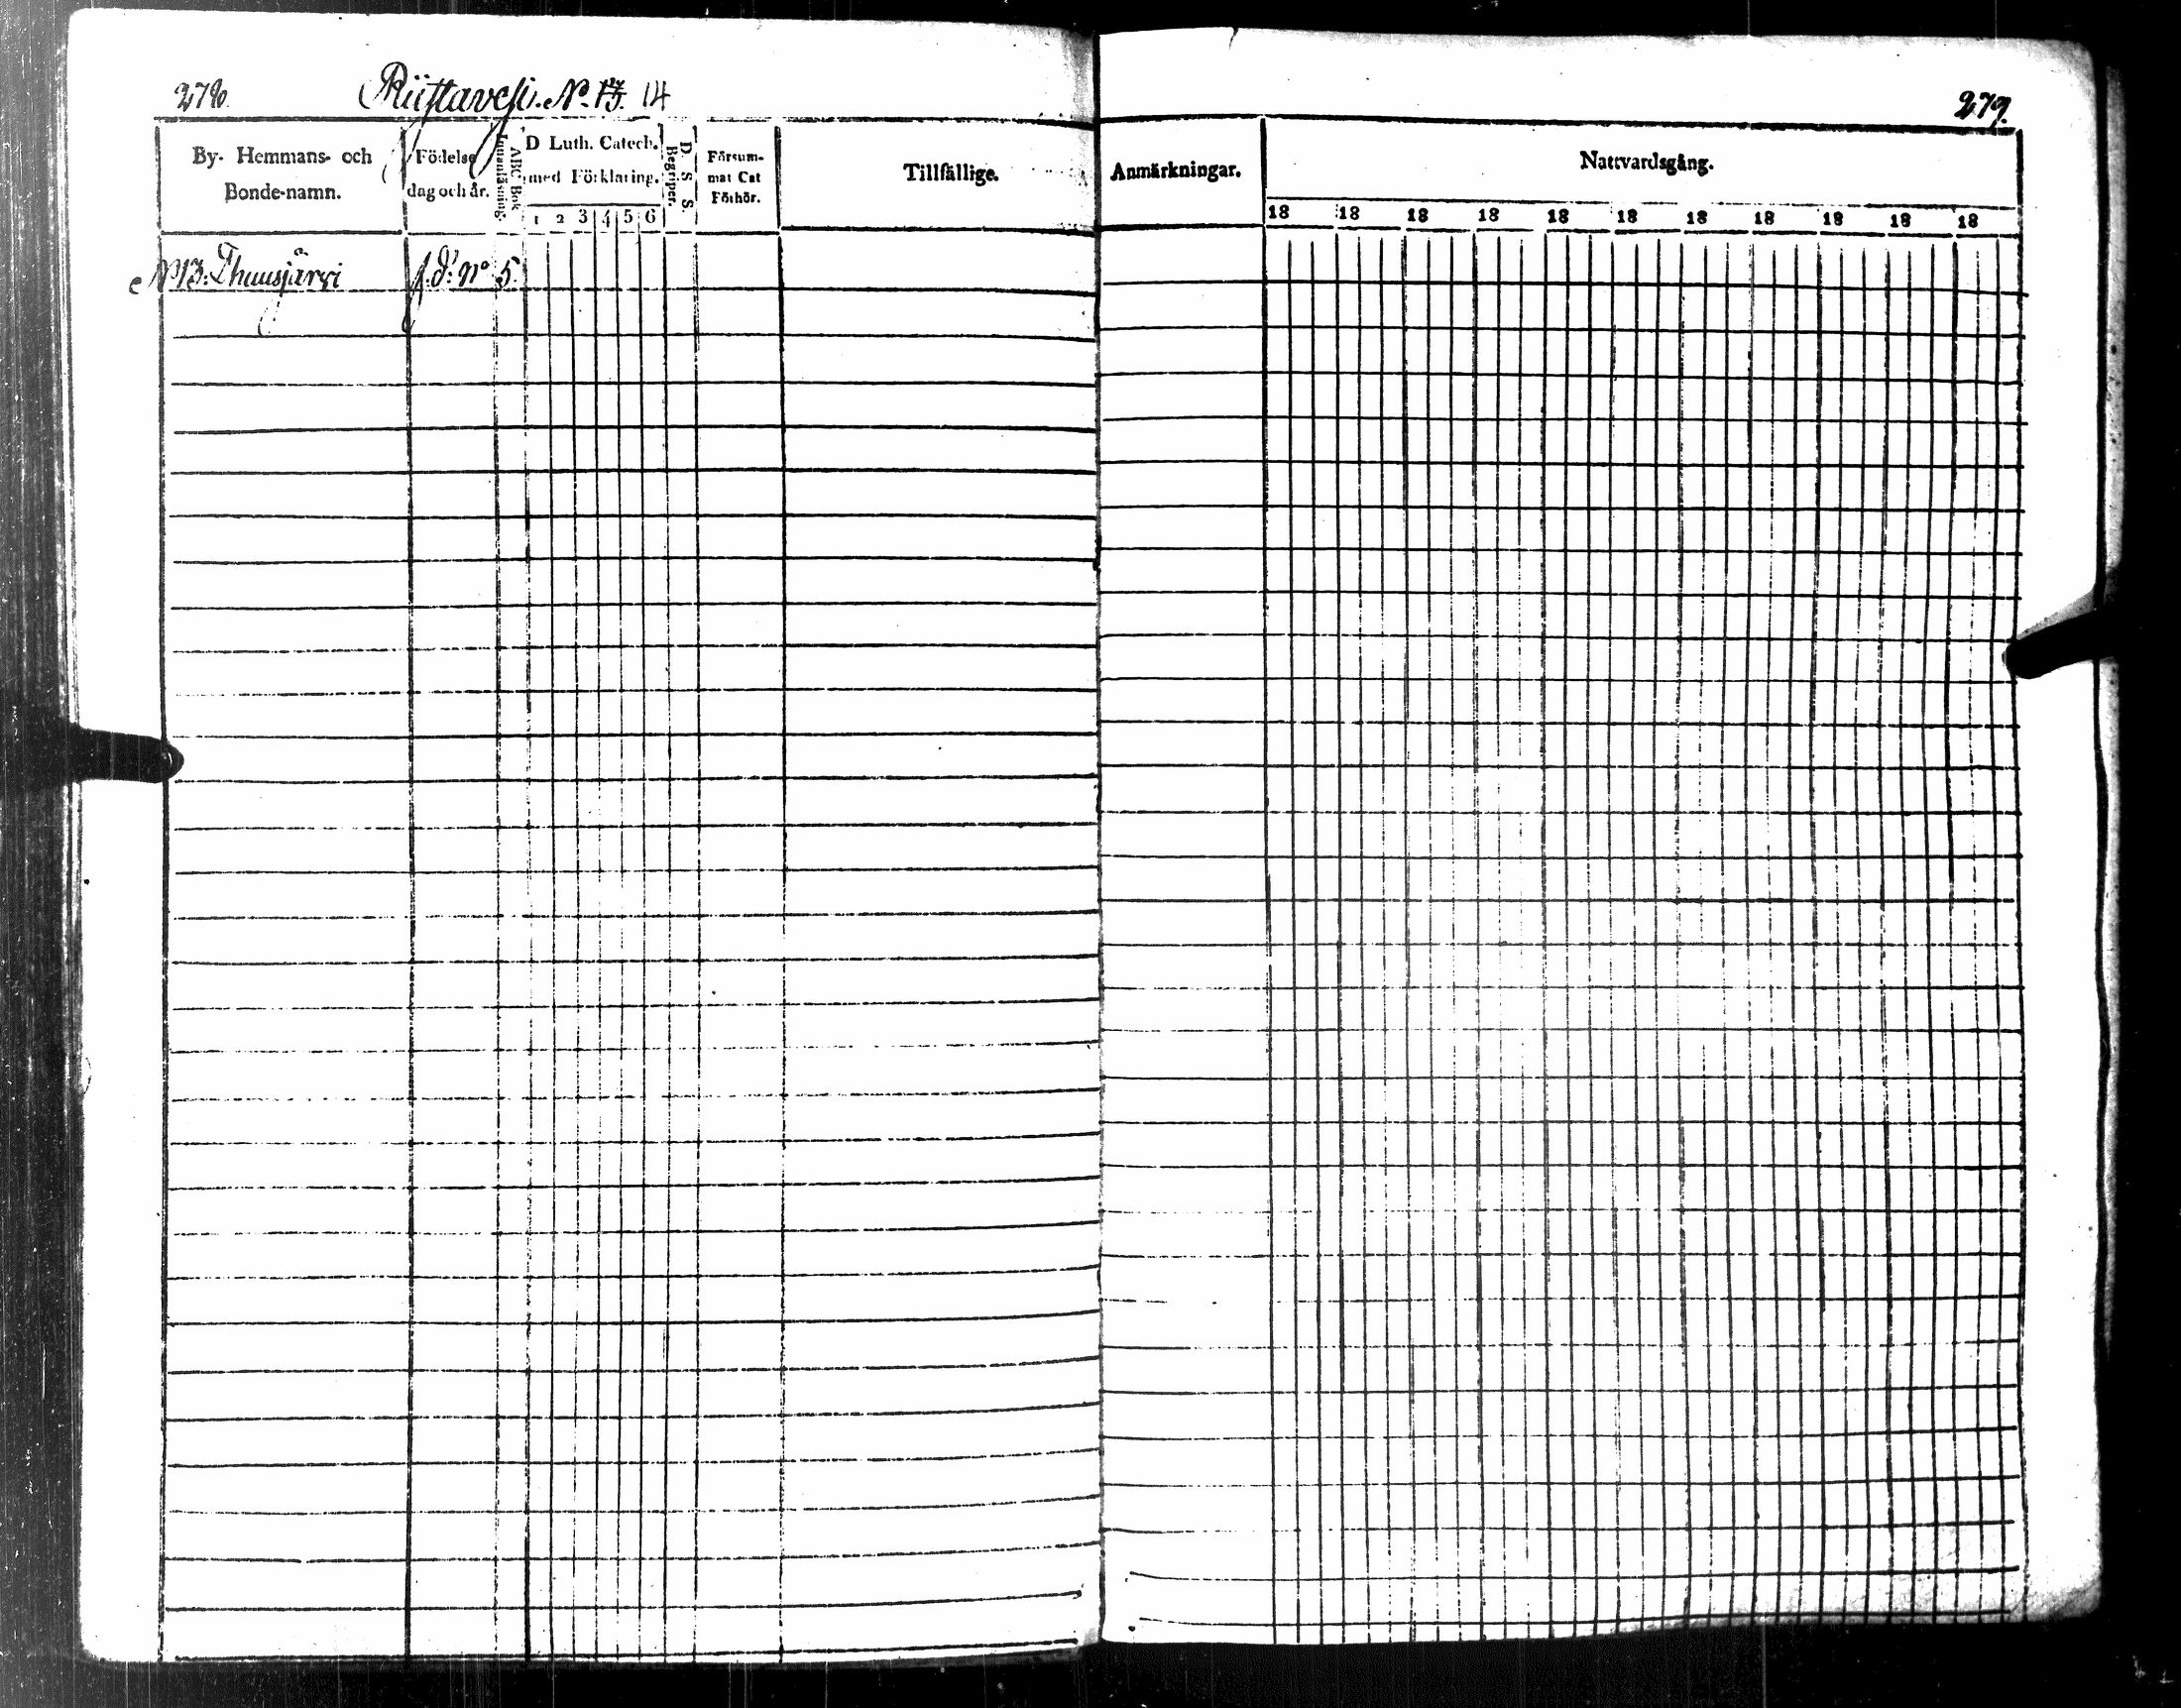 278. Riistavesi. No. 13. 14
By- Hemmans- och
Bonde-namn.
Födelse
dag och år.
Innanläsning.
ABC Bok
D Luth. Catech.
med Förklaring.
1 2 3 4 5 6
Begriper.
D. S. S.
Försum-
mat Cat
Förhör.
Tillfällige.
No 13. Thuusjärvi f.d. No 5.
279.
Anmärkningar.
Nattvardsgång.
18 18 18 18 18 18 18 18 18 18 18